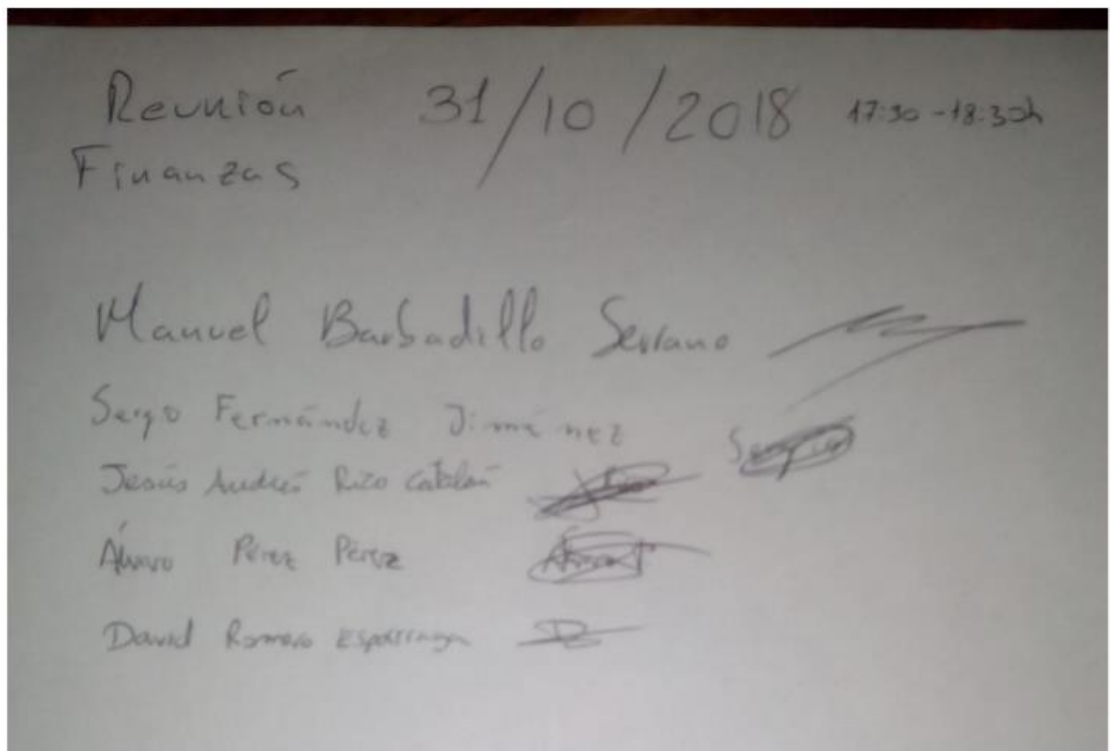 Reunión 31/10/2018 17:30-18:30h
Finanzas
Manuel Barbadillo Serrano
Sergio Fernández Jiménez Sergio
Jesús Andrés Rizo Catalán
Álvaro Pérez Pérez Álvaro
David Romero Esparraga